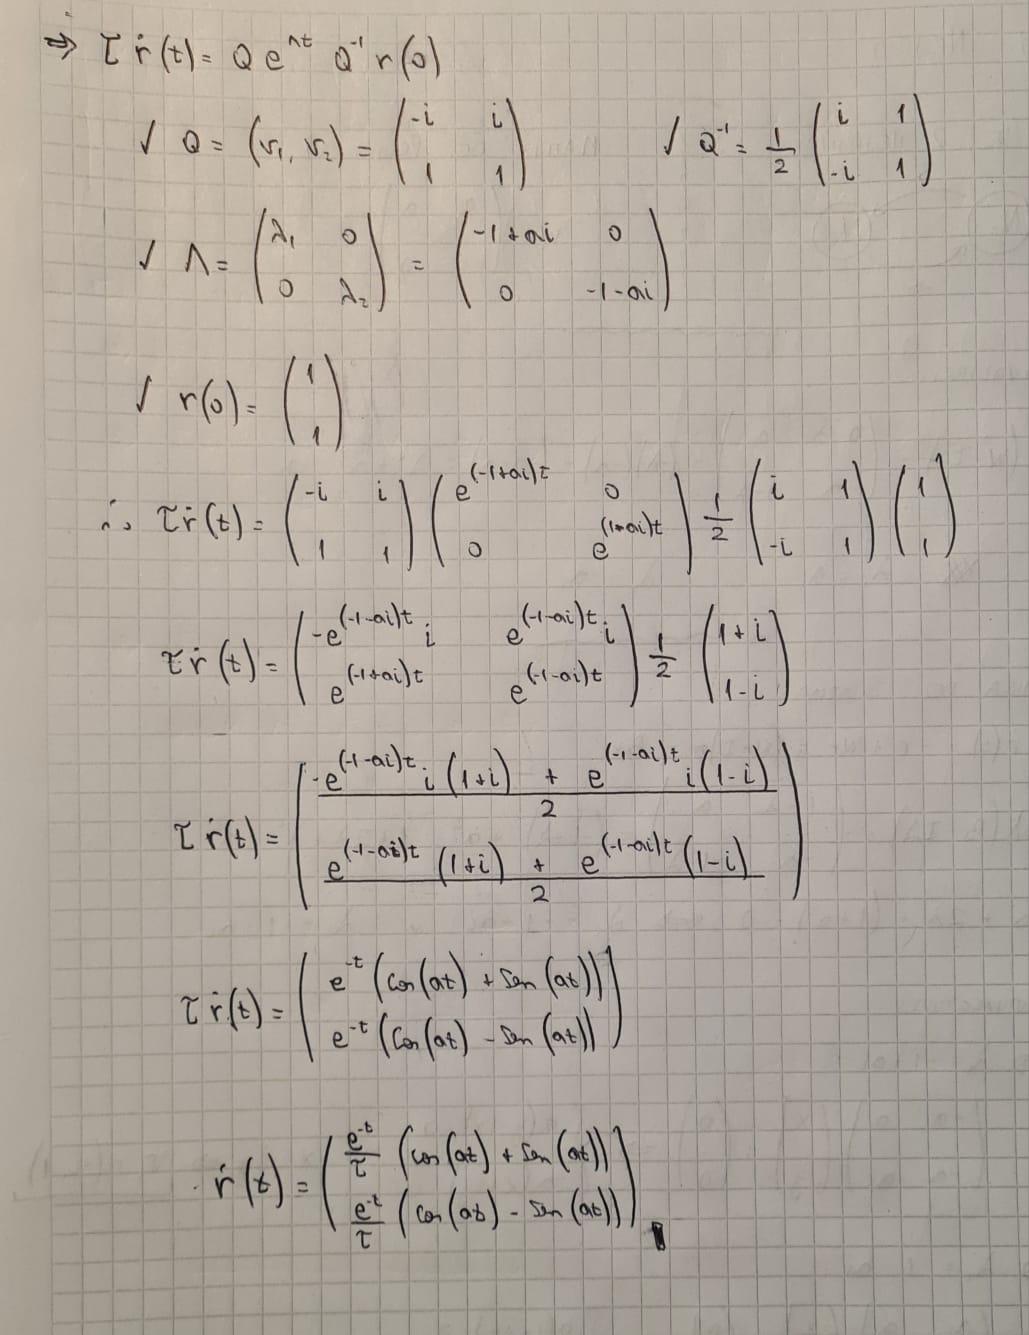 ⇒ τ ṙ(t) = Q e^{Λt} Q⁻¹ r(0)
✓ Q = (v₁, v₂) = ( -i i ; 1 1 ) ✓ Q⁻¹ = 1/2 ( i 1 ; -i 1 )
✓ Λ = ( λ₁ 0 ; 0 λ₂ ) = ( -1+ai 0 ; 0 -1-ai )
✓ r(0) = ( 1 ; 1 )
∴ τṙ(t) = ( -i i ; 1 1 ) ( e^{(-1+ai)t} 0 ; 0 e^{(1-ai)t} ) 1/2 ( i 1 ; -i 1 ) ( 1 ; 1 )
τṙ(t) = ( -e^{(-1-ai)t} i e^{(-1-ai)t} i ; e^{(-1+ai)t} e^{(-1-ai)t} ) 1/2 ( 1+i ; 1-i )
τ ṙ(t) = ( (-e^{(-1-ai)t} i (1+i) + e^{(-1-ai)t} i (1-i))/2 ; (e^{(-1-ai)t} (1+i) + e^{(-1-ai)t} (1-i))/2 )
τ ṙ(t) = ( e^{-t} (cos(at) + sen(at)) ; e^{-t} (cos(at) - sen(at)) )
ṙ(t) = ( e^{-t}/τ (cos(at) + sen(at)) ; e^{-t}/τ (cos(at) - sen(at)) )